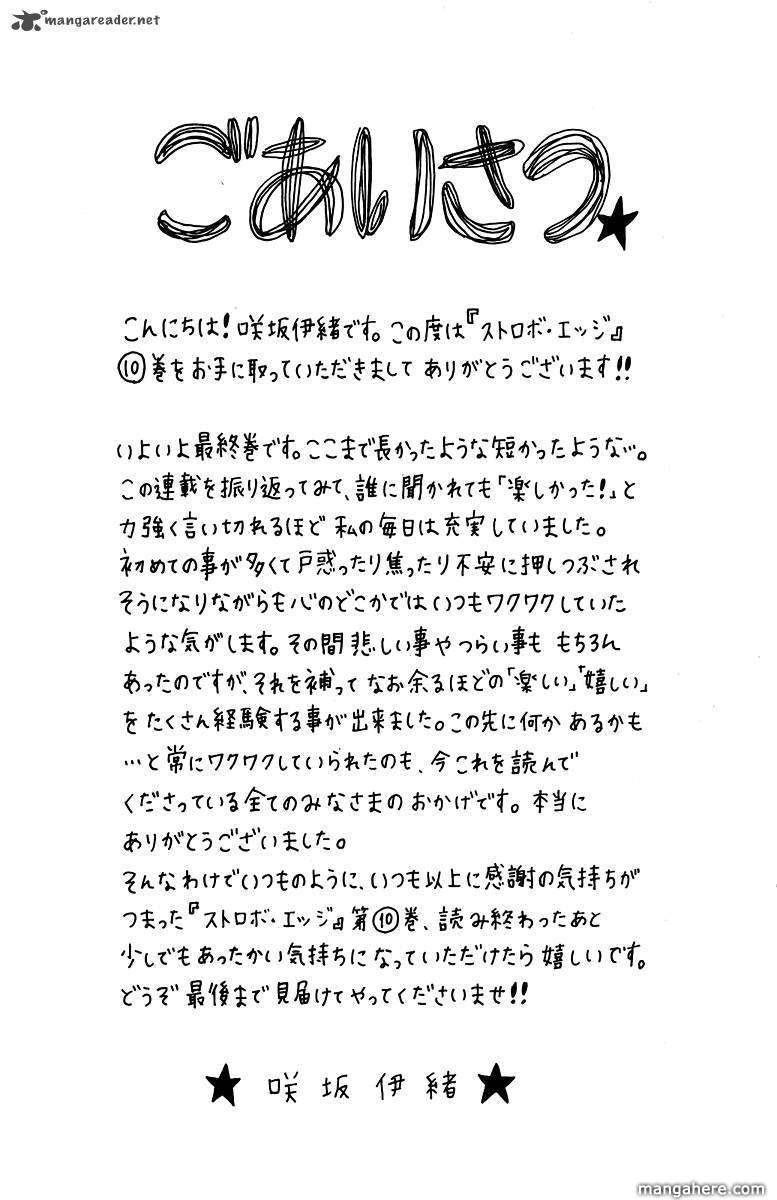 mangareader.net
ごあいさつ★
こんにちは!咲坂伊緒です。この度は『ストロボ・エッジ』
⑩巻をお手に取っていただきまして ありがとうございます!!
いよいよ最終巻です。ここまで長かったような短かったような…。
この連載を振り返ってみて、誰に聞かれても「楽しかった!」と
力強く言い切れるほど 私の毎日は充実していました。
初めての事が多くて戸惑ったり焦ったり不安に押しつぶされ
そうになりながらも心のどこかではいつもワクワクしていた
ような気がします。その間悲しい事やつらい事も もちろん
あったのですが、それを補って なお余るほどの「楽しい」「嬉しい」
をたくさん経験する事が出来ました。この先に何か あるかも
…と常にワクワクしていられたのも、今これを読んで
くださっている全てのみなさまの おかげです。本当に
ありがとうございました。
そんなわけでいつものように、いつも以上に感謝の気持ちが
つまった『ストロボ・エッジ』第⑩巻、読み終わったあと
少しでもあったかい気持ちになっていただけたら嬉しいです。
どうぞ 最後まで見届けてやってくださいませ!!
★ 咲坂伊緒 ★
mangahere.com